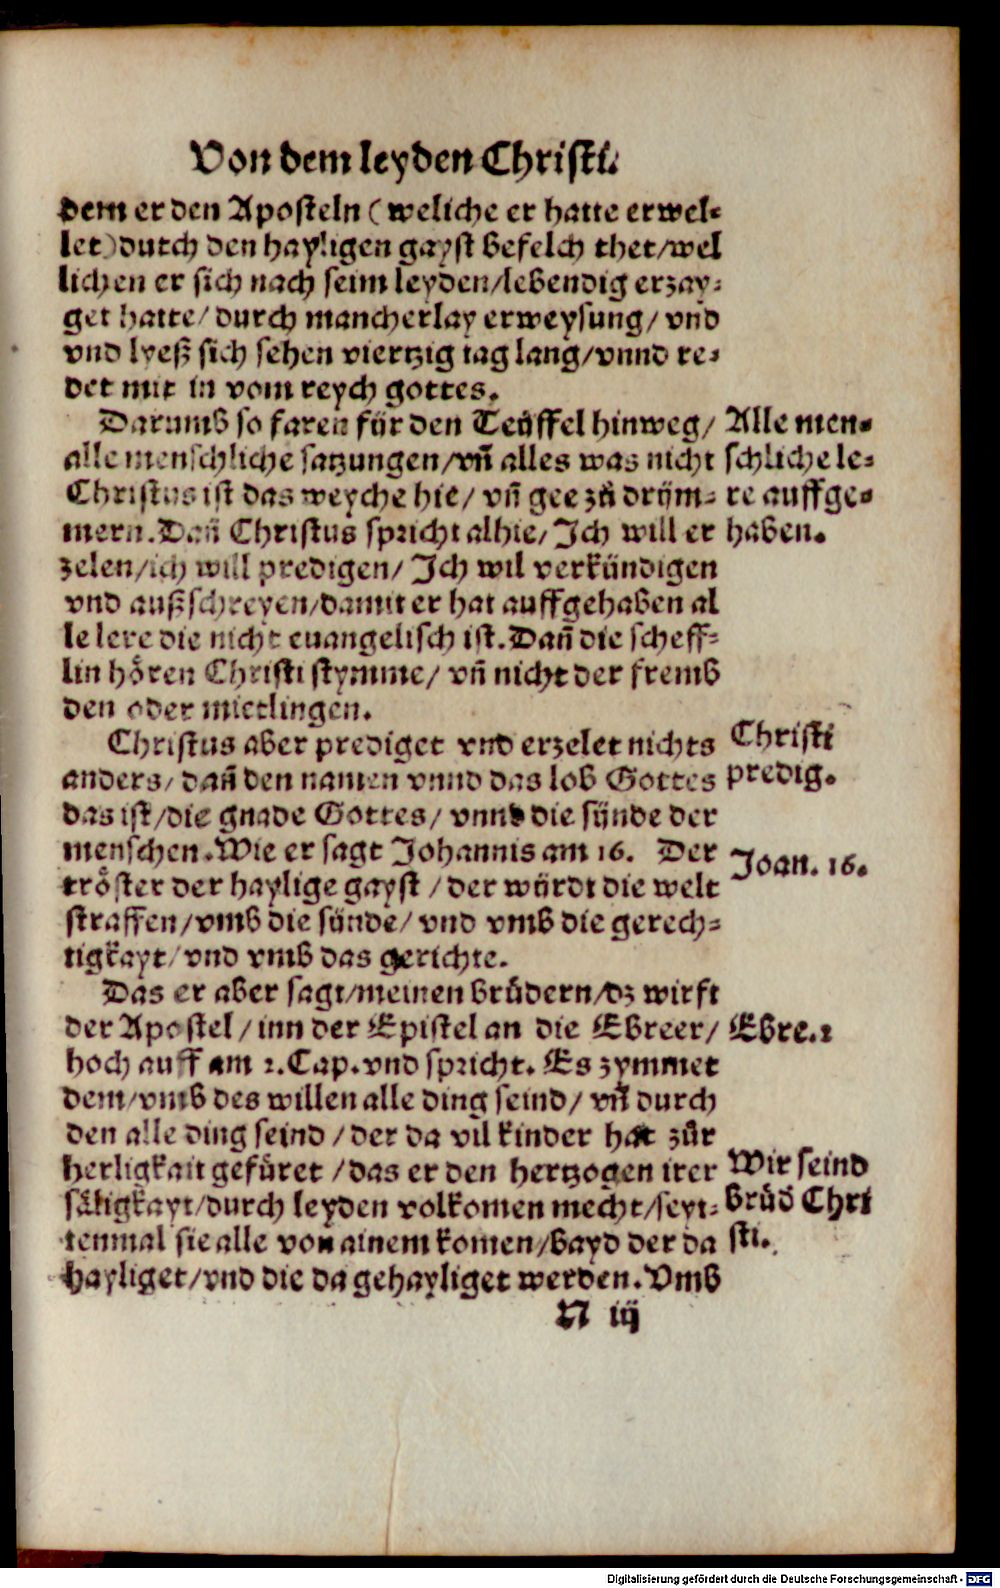 Von dem leyden Christi.
dem er den Aposteln (weliche er hatte erwel-
let) durch den hayligen gayst befelch thet/wel
lichen er sich nach seim leyden/lebendig erzay-
get hatte/ durch mancherlay erweysung/ vnd
vnd lyeß sich sehen viertzig tag lang/vnnd re-
det mit in vom reych gottes.
Darumb so faren für den Teüffel hinweg/
alle menschliche satzungen/vn̄ alles was nicht
Christus ist das weyche hie/ vn̄ gee zů drüm-
mern. Dan̄ Christus spricht alhie/ Ich will er
zelen/ich will predigen/ Ich wil verkündigen
vnd außschreyen/damit er hat auffgehaben al
le lere die nicht euangelisch ist. Dan̄ die scheff-
lin hören Christi stymme/ vn̄ nicht der fremb
den oder mietlingen.
Alle men-
schliche le-
re auffge-
haben.
Christus aber prediget vnd erzelet nichts
anders/ dan̄ den namen vnnd das lob Gottes
das ist/die gnade Gottes/ vnnd die sünde der
menschen. Wie er sagt Johannis am 16. Der
tröster der haylige gayst /der würdt die welt
straffen/vmb die sünde/ vnd vmb die gerech-
tigkayt/ vnd vmb das gerichte.
Christi
predig.
Joan. 16.
Das er aber sagt/meinen brůdern/dz wirft
der Apostel/ inn der Epistel an die Ebreer/
hoch auff am 2. Cap. vnd spricht. Es zymmet
dem/vmb des willen alle ding seind/ vn̄ durch
den alle ding seind /der da vil kinder hat zůr
herligkait gefüret /das er den hertzogen irer
säligkayt/durch leyden volkomen mecht/seyt-
tenmal sie alle von ainem komen/bayd der da
hayliget/vnd die da gehayliget werden. Vmb
Ebre. 2
Wir seind
brůd̄ Chri
sti.
N iij
Digitalisierung gefördert durch die Deutsche Forschungsgemeinschaft - DFG